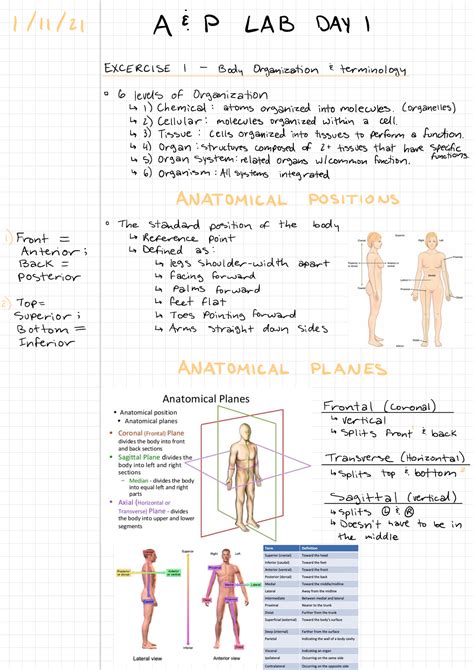 1/11/21
A & P LAB DAY 1
EXCERCISE 1 – Body Organization & terminology
6 levels of Organization
↳ 1) Chemical: atoms organized into molecules. (organelles)
↳ 2) Cellular: molecules organized within a cell.
↳ 3) Tissue: cells organized into tissues to perform a function.
↳ 4) Organ: structures composed of 2+ tissues that have specific functions.
↳ 5) Organ System: related organs w/common function.
↳ 6) Organism: All systems integrated
ANATOMICAL POSITIONS
The standard position of the body
↳ Reference point
↳ Defined as:
↳ legs shoulder-width apart
↳ facing forward
↳ palms forward
↳ feet flat
↳ Toes Pointing forward
↳ Arms straight down sides
1) Front =
Anterior;
Back =
Posterior
2) Top=
Superior;
Bottom =
Inferior
ANATOMICAL PLANES
Anatomical Planes
• Anatomical position
• Anatomical planes
• Coronal (Frontal) Plane
divides the body into front
and back sections
• Sagittal Plane divides the
body into left and right
sections
– Median - divides the body
into equal left and right
parts
• Axial (Horizontal or
Transverse) Plane - divides
the body into upper and lower
segments
Frontal (coronal)
↳ vertical
↳ splits front & back
Transverse (Horizontal)
↳ splits top & bottom
Sagittal (vertical)
↳ splits L & R
↳ Doesn't have to be in
the middle
Superior
Right
Left
Proximal
Medial
Lateral
Lateral view
Anterior view
Term
Definition
Superior (cranial)
Toward the head
Inferior (caudal)
Toward the feet
Anterior (ventral)
Toward the front
Posterior (dorsal)
Toward the back
Medial
Toward the midline/middle
Lateral
Away from the midline
Intermediate
Between medial and lateral
Proximal
Nearer to the trunk
Distal
Farther from the trunk
Superficial (external)
Toward the body's surface
Deep (internal)
Farther from the surface
Parietal
Indicating the wall of a body cavity
Visceral
Ipsilateral
Occurring on the same side
Contralateral